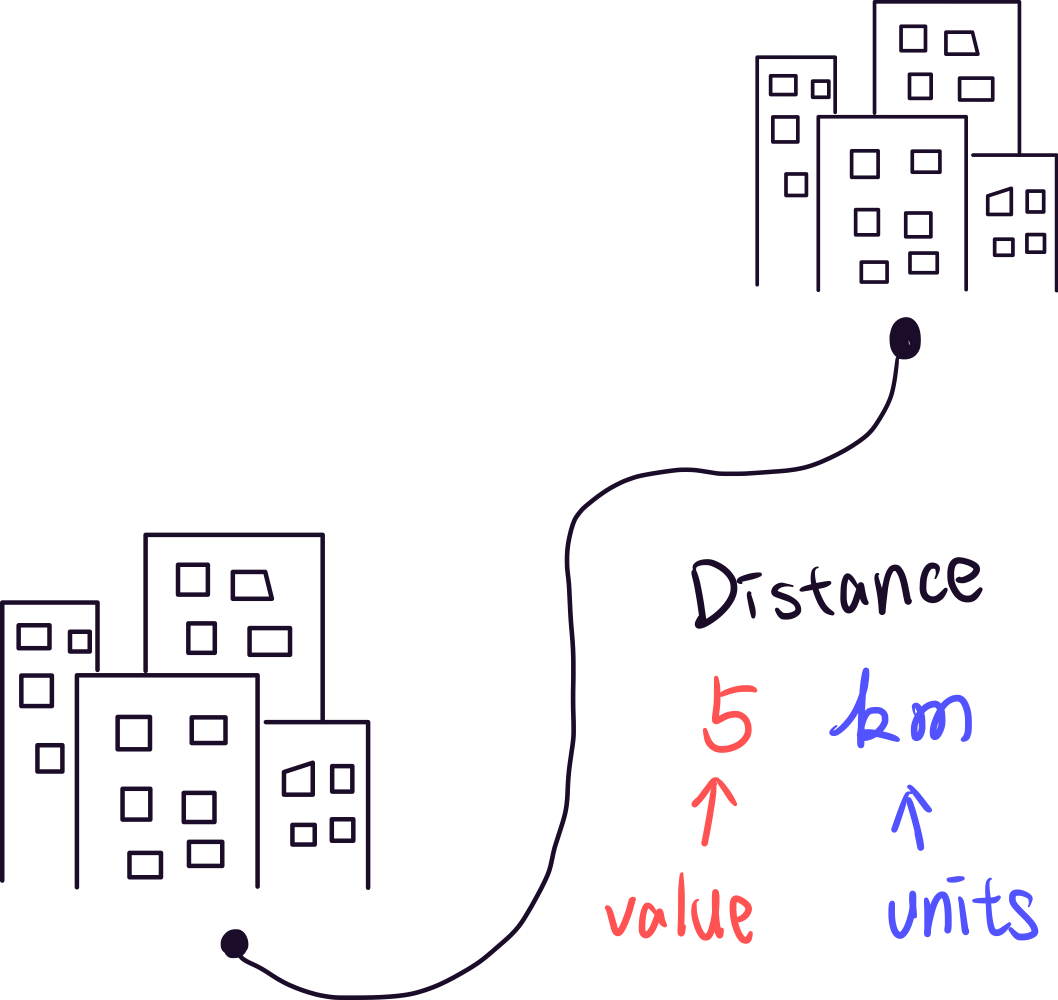 Distance
5 km
value units